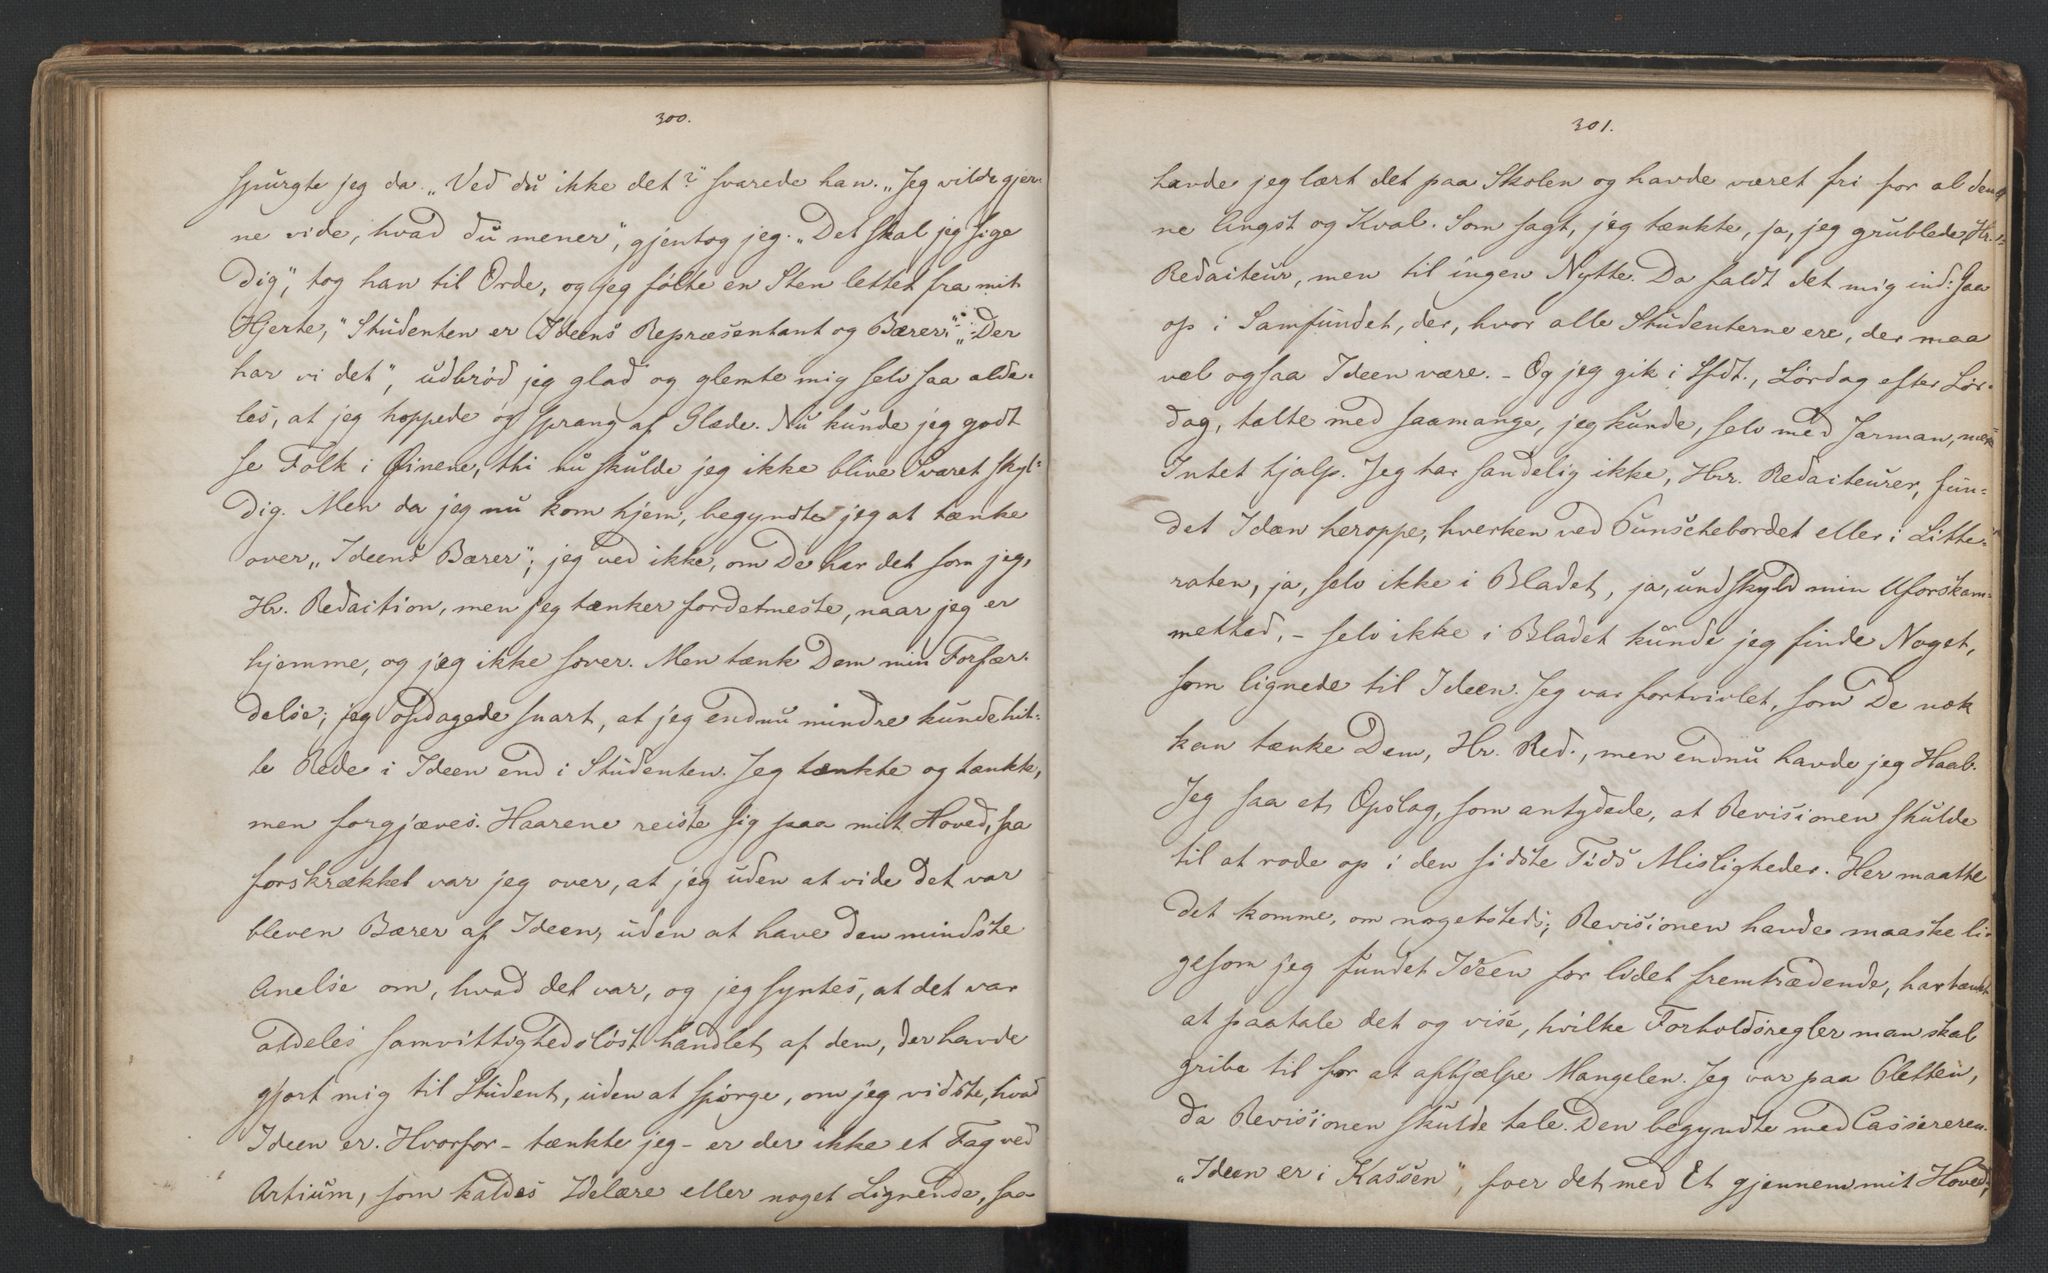 300.
spurgte jeg da. „Ved du ikke det?" svarede han. „Jeg vilde gjer-
ne vide, hvad du mener", gjentog jeg. „Det skal jeg sige
dig", tog han til Orde, og jeg følte en Sten lettet fra mit
Hjerte, "Studenten er Ideens Repræsentant og Bærer." „Der
har vi det", udbrød jeg glad og glemte mig selv saa alde-
les, at jeg hoppede og sprang af Glæde. Nu kunde jeg godt
se Folk i Øinene, thi nu skulde jeg ikke blive Svaret skyl-
dig. Men da jeg nu kom hjem, begyndte jeg at tænke
over „Ideens Bærer"; jeg ved ikke, om De har det som jeg,
Hr. Redaction, men jeg tænker fordetmeste, naar jeg er
hjemme, og jeg ikke sover. Men tænk Dem min Forfær-
delse; jeg opdagede snart, at jeg endnu mindre kunde hit-
te Rede i Ideen end i Studenten. Jeg tænkte og tænkte,
men forgjæves. Haarene reiste sig paa mit Hoved, saa
forskrækket var jeg over, at jeg uden at vide det var
bleven Bærer af Ideen, uden at have den mindste
Anelse om, hvad det var, og jeg syntes, at det var
aldeles samvittighedsløst handlet af dem, der havde
gjort mig til Student, uden at spørge, om jeg vidste, hvad
Ideen er. Hvorfor - tænkte jeg - er der ikke et Fag ved
Artium, som kaldes Idelære eller noget Lignende, saa
301.
havde jeg lært det paa Skolen og havde været fri for al den-
ne Angst og Kval. Som sagt, jeg tænkte, ja, jeg grublede, Hr.
Redacteur, men til ingen Nytte. Da faldt det mig ind: Gaa
op i Samfundet, der, hvor alle Studenterne ere, der maa
vel ogsaa Ideen være. - Og jeg gik i Sfdt., Lørdag efter Lør-
dag, talte med saamange, jeg kunde, selv med Jarman, men
Intet hjalp. Jeg har sandelig ikke, Hrr. Redacteurer, fun-
det Idæn heroppe, hverken ved Punschebordet eller i Litte-
raten, ja, selv ikke i Bladet, ja, undskyld min Uforskam-
methed, - selv ikke i Bladet kunde jeg finde Noget,
som lignede til Ideen. Jeg var fortvivlet, som De nok
kan tænke Dem, Hr. Red., men endnu havde jeg Haab.
Jeg saa et Opslag, som antydede, at Revisionen skulde
til at rode op i den sidste Tids Misligheder. Her maatte
det komme, om nogetsteds; Revisionen havde maaske li-
gesom jeg fundet Ideen for lidet fremtrædende, har tænkt
at paatale det og vise, hvilke Forholdsregler man skal
gribe til for at afhjælpe Mangelen. Jeg var paa Pletten,
da Revisionen skulde tale. Den begyndte med Cassereren.
„Ideen er i Kassen", foer det med Et gjennem mit Hoved;